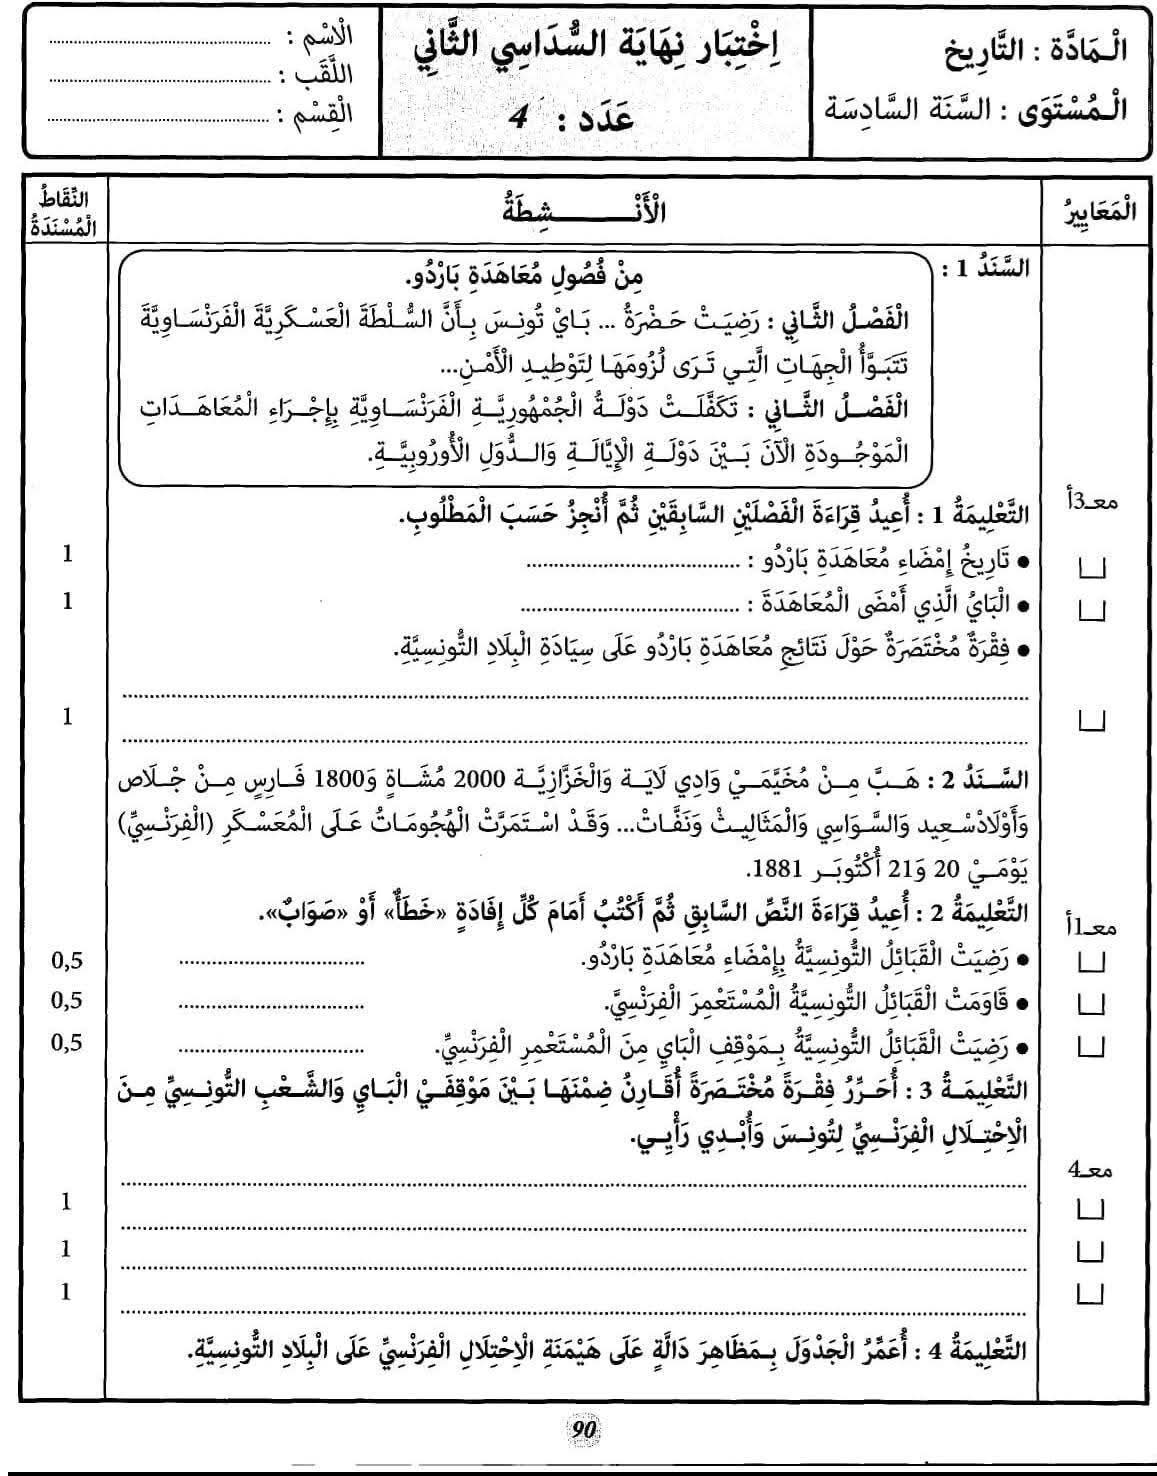 الْمَادَّة : التَّارِيخ
الْمُسْتَوَى : السَّنَة السَّادِسَة
اِخْتِبَار نِهَايَة السُّدَاسِي الثَّانِي
عَدَد : 4
الْاسْم : ..............................
اللَّقَب : ..............................
الْقِسْم : ..............................
الْمَعَايِيرُ
الْأَنْـــــــــشِطَةُ
النِّقَاطُ
الْمُسْنَدَةُ
السَّنَدُ 1 :
مِنْ فُصُولِ مُعَاهَدَةِ بَارْدُو.
الْفَصْلُ الثَّانِي : رَضِيَتْ حَضْرَةُ ... بَايْ تُونِسَ بِأَنَّ السُّلْطَةَ الْعَسْكَرِيَّةَ الْفَرَنْسَاوِيَّةَ
تَتَبَوَّأُ الْجِهَاتِ الَّتِي تَرَى لُزُومَهَا لِتَوْطِيدِ الْأَمْنِ...
الْفَصْلُ الثَّانِي : تَكَفَّلَتْ دَوْلَةُ الْجُمْهُورِيَّةِ الْفَرَنْسَاوِيَّةِ بِإِجْرَاءِ الْمُعَاهَدَاتِ
الْمَوْجُودَةِ الْآنَ بَيْنَ دَوْلَةِ الْإِيَّالَةِ وَالدُّوَلِ الْأُورُوبِيَّةِ.
معـ3أ
التَّعْلِيمَةُ 1 : أُعِيدُ قِرَاءَةَ الْفَصْلَيْنِ السَّابِقَيْنِ ثُمَّ أُنْجِزُ حَسَبَ الْمَطْلُوبِ.
• تَارِيخُ إِمْضَاءِ مُعَاهَدَةِ بَارْدُو : .............................. 1
• الْبَايُ الَّذِي أَمْضَى الْمُعَاهَدَةَ : .............................. 1
• فِقْرَةٌ مُخْتَصَرَةٌ حَوْلَ نَتَائِجِ مُعَاهَدَةِ بَارْدُو عَلَى سِيَادَةِ الْبِلَادِ التُّونِسِيَّةِ.
1
السَّنَدُ 2 : هَبَّ مِنْ مُخَيَّمَيْ وَادِي لَايَة وَالْخَزَّازِيَّة 2000 مُشَاةٍ وَ1800 فَارِسٍ مِنْ جْلَاص
وَأَوْلَادْسْعِيد وَالسَّوَاسِي وَالْمَثَالِيثْ وَنَفَّاتْ... وَقَدْ اسْتَمَرَّتْ الْهُجُومَاتُ عَلَى الْمُعَسْكَرِ (الْفِرَنْسِيِّ)
يَوْمَيْ 20 وَ21 أُكْتُوبَر 1881.
معـ1أ
التَّعْلِيمَةُ 2 : أُعِيدُ قِرَاءَةَ النَّصِّ السَّابِقِ ثُمَّ أَكْتُبُ أَمَامَ كُلِّ إِفَادَةٍ «خَطَأٌ» أَوْ «صَوَابٌ».
• رَضِيَتْ الْقَبَائِلُ التُّونِسِيَّةُ بِإِمْضَاءِ مُعَاهَدَةِ بَارْدُو. .............................. 0,5
• قَاوَمَتْ الْقَبَائِلُ التُّونِسِيَّةُ الْمُسْتَعْمِرَ الْفِرَنْسِيَّ. .............................. 0,5
• رَضِيَتْ الْقَبَائِلُ التُّونِسِيَّةُ بِمَوْقِفِ الْبَايِ مِنَ الْمُسْتَعْمِرِ الْفِرَنْسِيِّ. .............................. 0,5
التَّعْلِيمَةُ 3 : أُحَرِّرُ فِقْرَةً مُخْتَصَرَةً أُقَارِنُ ضِمْنَهَا بَيْنَ مَوْقِفَيْ الْبَايِ وَالشَّعْبِ التُّونِسِيِّ مِنَ
الْاِحْتِلَالِ الْفِرَنْسِيِّ لِتُونِسَ وَأُبْدِي رَأْيِي.
معـ4
1
1
1
التَّعْلِيمَةُ 4 : أُعَمِّرُ الْجَدْوَلَ بِمَظَاهِرَ دَالَّةٍ عَلَى هَيْمَنَةِ الْاِحْتِلَالِ الْفِرَنْسِيِّ عَلَى الْبِلَادِ التُّونِسِيَّةِ.
90